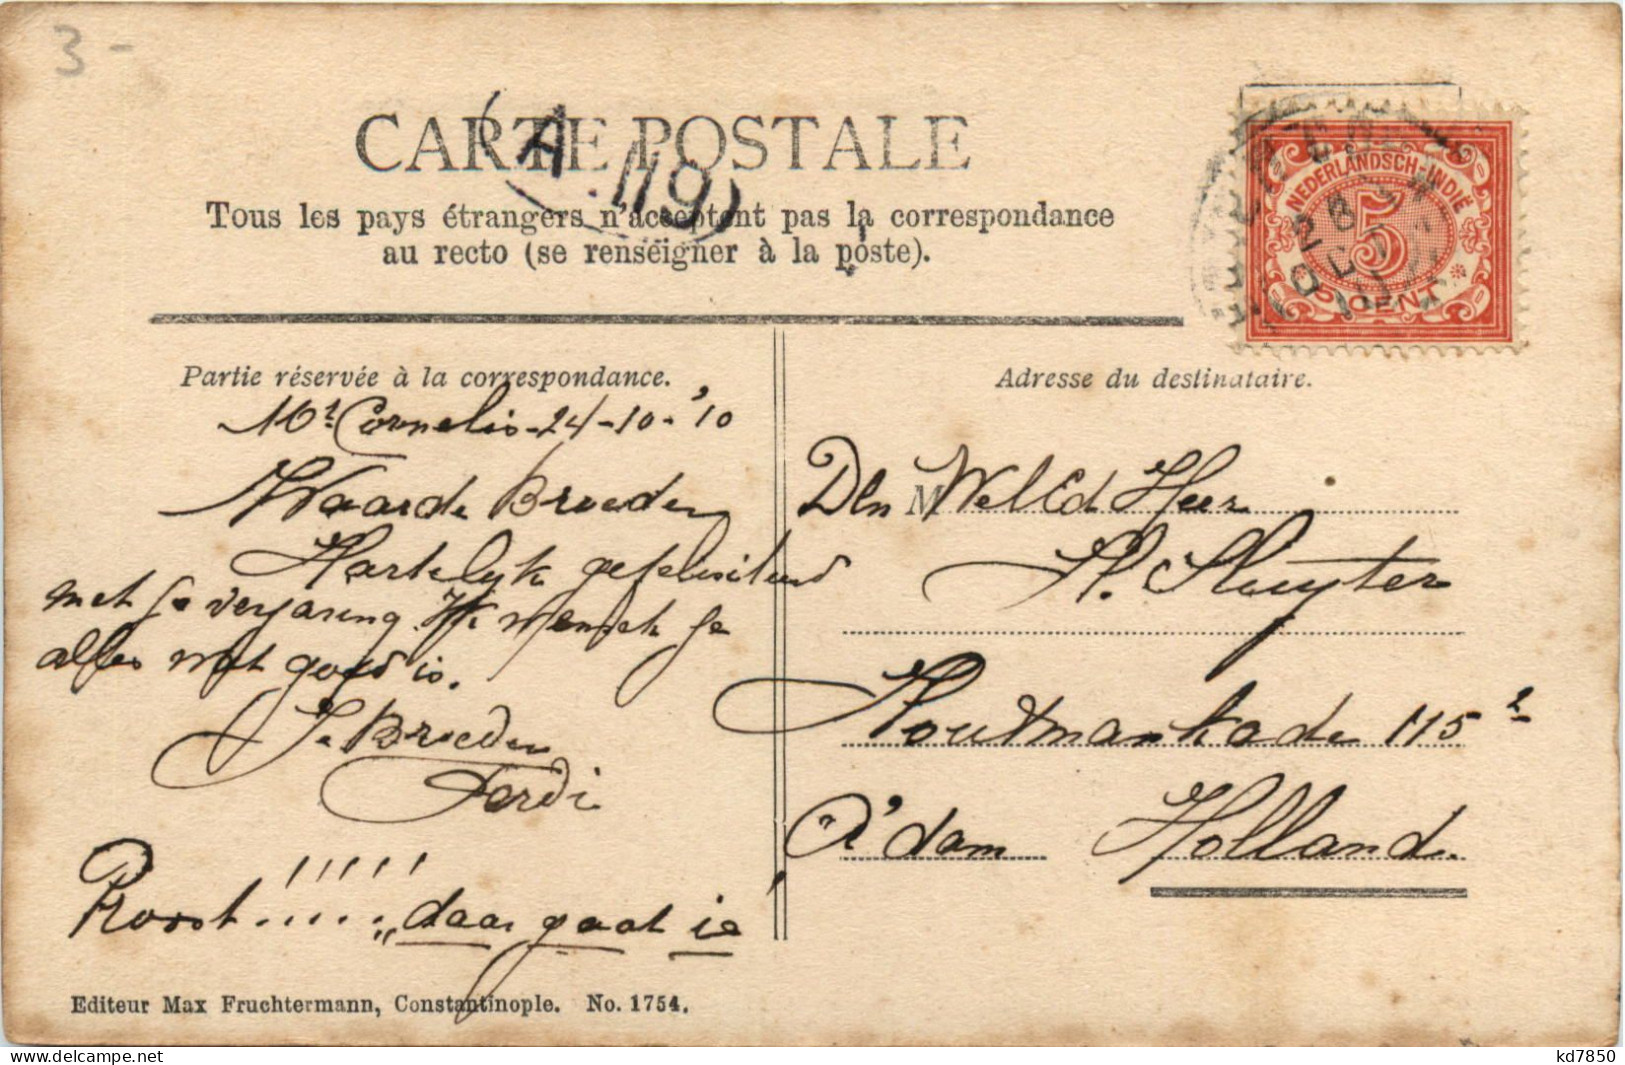 3 -
CARTE POSTALE
A 119
Tous les pays étrangers n'acceptent pas la correspondance
au recto (se renseigner à la poste).
NEDERLANDSCH-INDIË
5
CENT
Partie réservée à la correspondance.
Mr Cornelis - 24-10-'10
Waarde Broeder
Hartelijk gefeliciteerd
met je verjaring. Ik wensch je
alles wat goed is.
Je Broeder
Ferdi
Proost!!!!! „daar gaat ie
Adresse du destinataire.
Den M WelEd Heer
H. Sluyter
Houtmankade 115 2
A'dam Holland
Editeur Max Fruchtermann, Constantinople. No. 1754.
kd7850